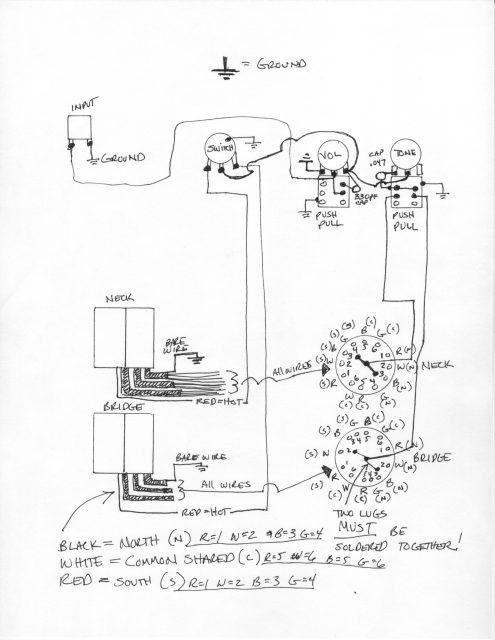 = GROUND
INPUT
GROUND
SWITCH
VOL
CAP .047
TONE
330PF CAP
PUSH PULL
PUSH PULL
NECK
BARE WIRE
All WIRES
RED=HOT
NECK
BRIDGE
BARE WIRE
All WIRES
RED=HOT
BRIDGE
TWO LUGS
MUST BE
SOLDERED TOGETHER!
BLACK = NORTH (N) R=1 W=2 B=3 G=4
WHITE = COMMON SHARED (C) R=5 W=6 B=5 G=6
RED = SOUTH (S) R=1 W=2 B=3 G=4